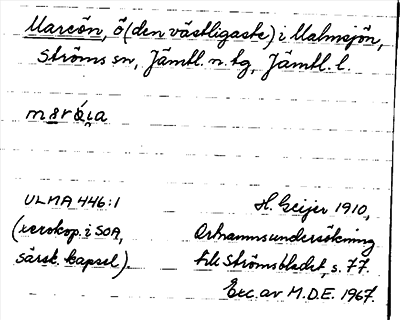 Mareön, ö (den västligaste) i Malmsjön,
Ströms sn, Jämtl. n. tg, Jämtl. l.
ULMA 446:1 H. Geijer 1910,
(xerokop. i SOA, Ortnamnsundersökning
särsk. kapsel). till Strömsbladet, s. 77.
Exc. av M.D.E. 1967.